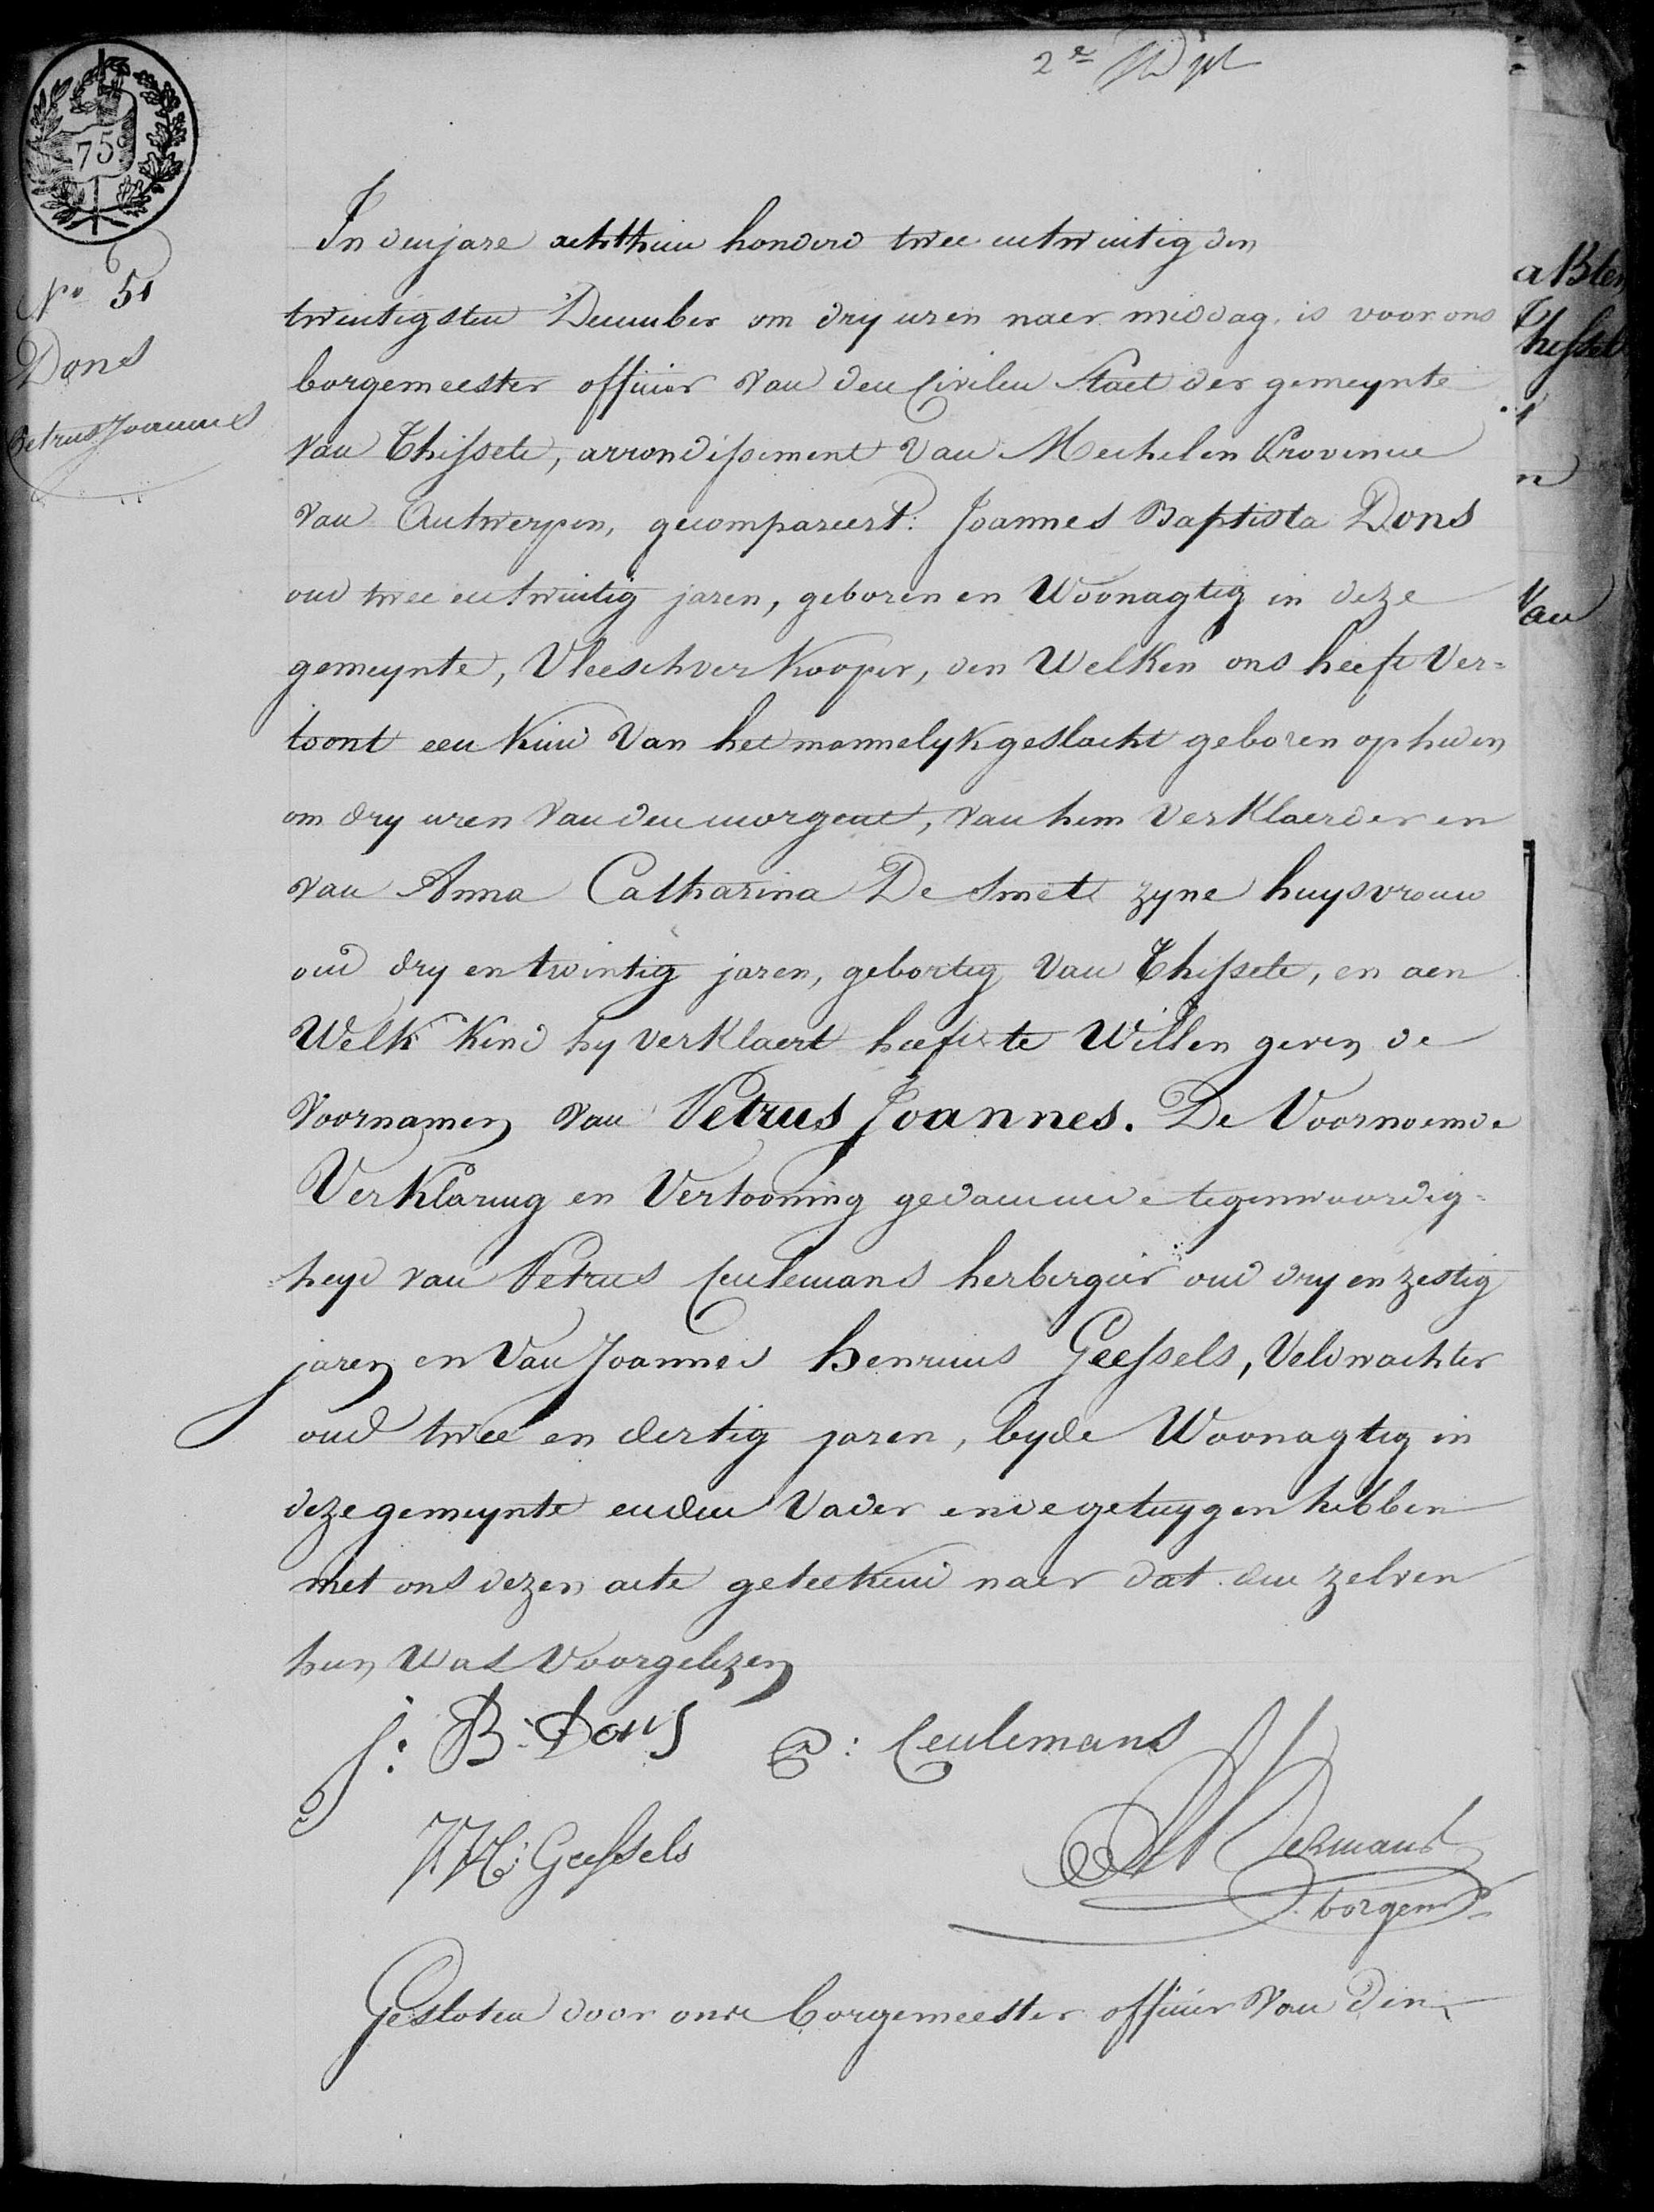 2e
75c
No 51
Dons
Petrus Joannes
In den jare achtthien honderd twee en twintig den
twintigsten December om dry uren naer middag, is voor ons
borgemeester officier van den Civilen Staet der gemeynte
van Thisselt, arrondissement van Mechelen Provincie
van Antwerpen, gecompareert: Joannes Baptista Dons
oud twee en twintig jaren, geboren en Woonagtig in deze
gemeynte, Vleeschverkooper, den Welken ons heeft Ver=
toont een kind Van het mannelyk geslacht geboren op heden
om dry uren van den morgent, van hem Verklaerder en
van Anna Catharina De Smet zyne huysvrouw
oud dry en twintig jaren, gebortig Van Thisselt, en aen
Welk kind hy verklaert heeft te Willen geven de
voornamen van Petrus Joannes. De Voornoemde
Verklaring en Vertooning gedaen in de tegenwoordig=
=heyd van Petrus Ceulemans herbergier oud dry en zestig
jaren en Van Joannes henricus Geessels, Veldwachter
oud twee en dertig jaren, byde Woonagtig in
deze gemeynte en den Vader en de getuygen hebben
met ons dezen acte geteekend naer dat den zelven
hun was voorgelezen
J: B: Dons P: Ceulemans
J H: Geessels
borgemr
Gesloten door onse borgemeester officier van den
a Blen
Thisselt
n
Van